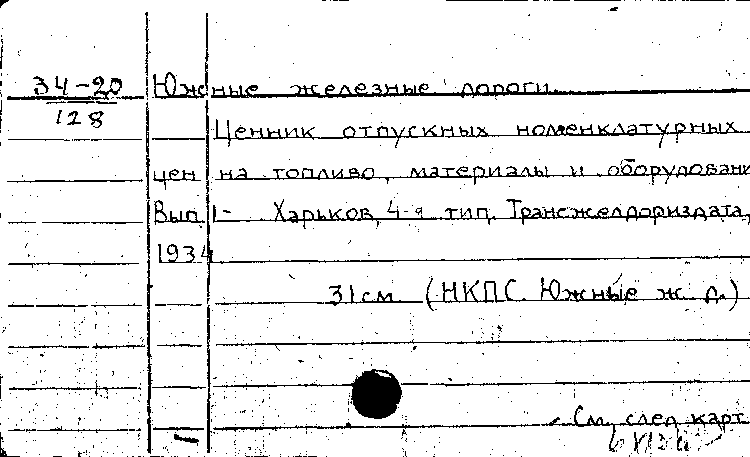 34-20 Южные железные дороги.
128
Ценник отпускных номенклатурных
цен на топливо, материалы и оборудовани
Вып. 1- Харьков, 4-я тип. Трансжелдориздата,
1934.
31см. (НКПС. Южные ж. д.)
См. след. карт.